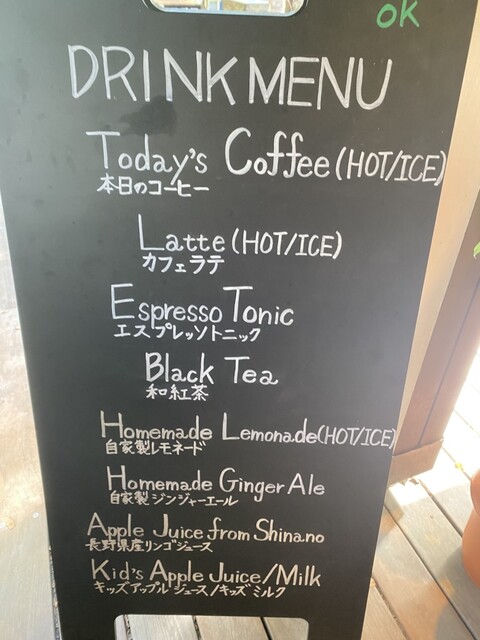 OK
DRINK MENU
Today's Coffee (HOT/ICE)
本日のコーヒー
Latte (HOT/ICE)
カフェラテ
Espresso Tonic
エスプレッソトニック
Black Tea
和紅茶
Homemade Lemonade (HOT/ICE)
自家製レモネード
Homemade Ginger Ale
自家製ジンジャーエール
Apple Juice from Shinano
長野県産リンゴジュース
Kid's Apple Juice/Milk
キッズアップルジュース/キッズミルク